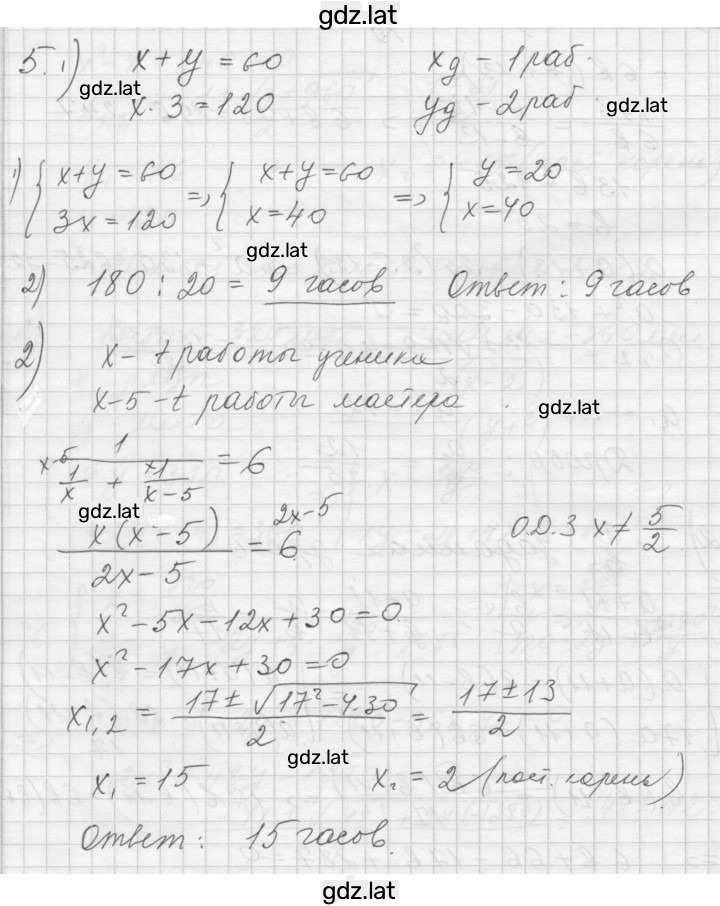 gdz.lat
5. 1) x + y = 60 xд - 1 раб.
gdz.lat
x · 3 = 120 yд - 2 раб
gdz.lat
1) { x + y = 60 => { x + y = 60 => { y = 20
3x = 120 x = 40 x = 40
gdz.lat
2) 180 : 20 = 9 часов Ответ: 9 часов
2) x - t работы ученика
x - 5 - t работы мастера
gdz.lat
1 / (x-5 1/x + x 1/(x - 5)) = 6
gdz.lat
x(x - 5) / (2x - 5) = 6 2x-5 О.Д.З x ≠ 5/2
x² - 5x - 12x + 30 = 0
x² - 17x + 30 = 0
x₁,₂ = (17 ± √(17² - 4·30)) / 2 = (17 ± 13) / 2
gdz.lat
x₁ = 15 x₂ = 2 (пост. корень)
Ответ: 15 часов.
gdz.lat